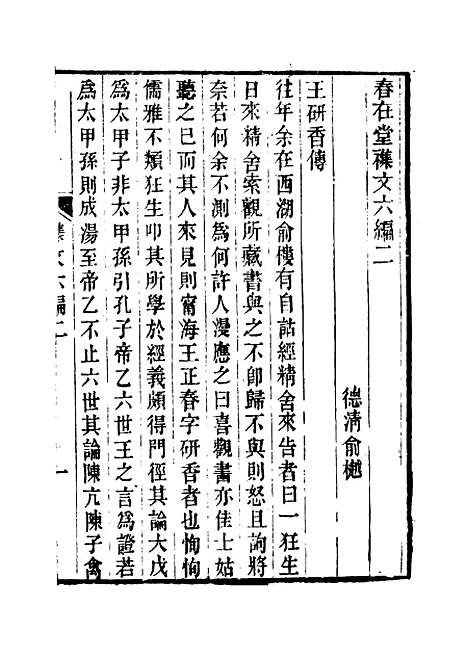 春在堂襍文六編二
德清俞樾
王研香傳
往年余在西湖俞樓有自詁經精舍來告者曰一狂生
日來精舍索觀所藏書與之不卽歸不與則怒且詢將
奈若何余不測爲何許人漫應之曰喜觀書亦佳士姑
聽之已而其人來見則甯海王正春字研香者也恂恂
儒雅不類狂生叩其所學於經義頗得門徑其論大戊
爲太甲子非太甲孫引孔子帝乙六世王之言爲證若
爲太甲孫則成湯至帝乙不止六世其論陳亢陳子禽
襍文六編二
一